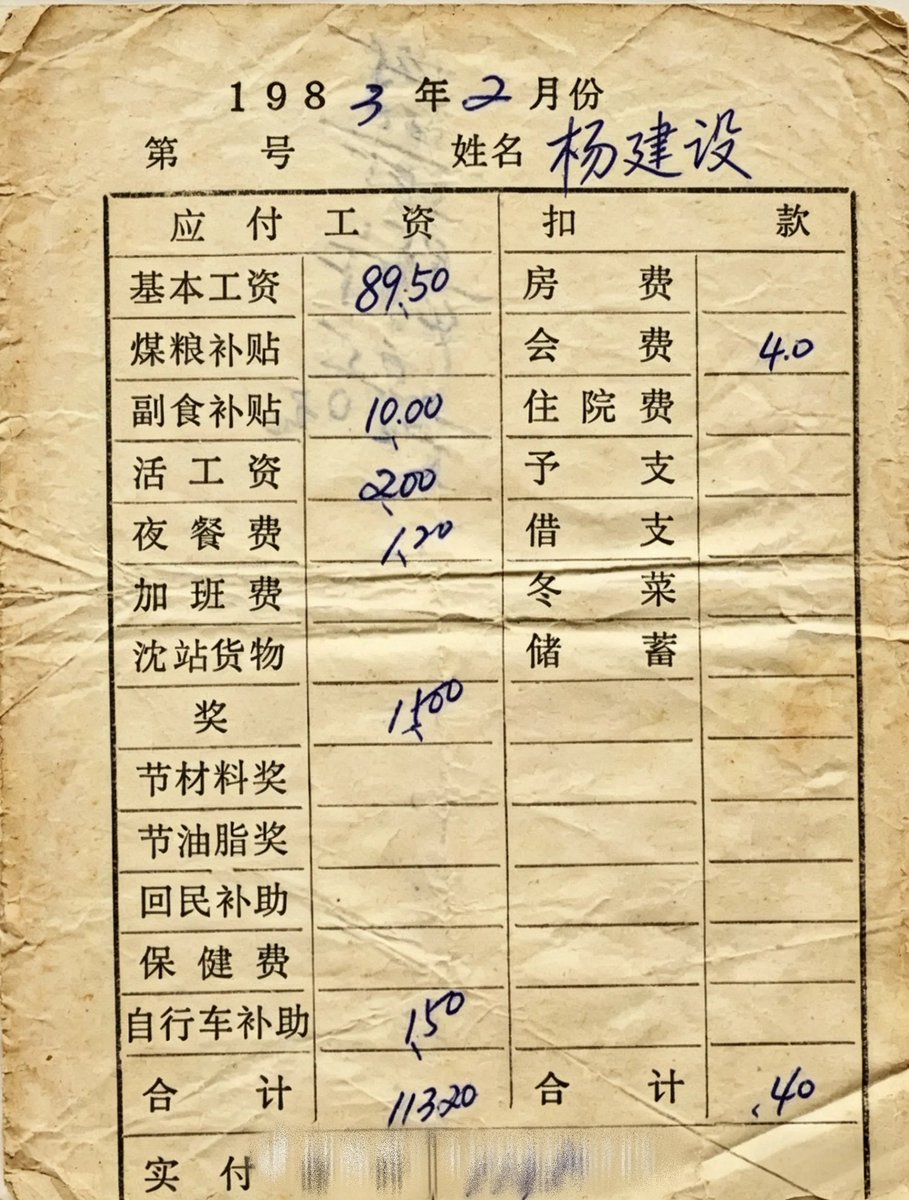 1983年2月份
第 号 姓名 杨建设
应付工资 扣款
基本工资 89.50 房费
煤粮补贴 会费 4.0
副食补贴 10.00 住院费
活工资 2.00 予支
夜餐费 1.20 借支
加班费 冬菜
沈站货物 储蓄
奖 15.00
节材料奖
节油脂奖
回民补助
保健费
自行车补助 1.50
合计 113.20 合计 .40
实付